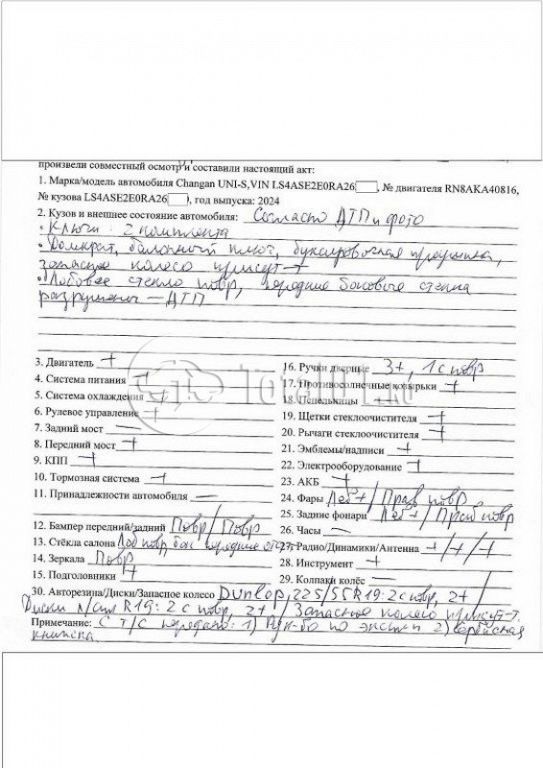 произвели совместный осмотр и составили настоящий акт:
1. Марка/модель автомобиля Changan UNI-S,VIN LS4ASE2E0RA26 , № двигателя RN8AKA40816,
№ кузова LS4ASE2E0RA26 ), год выпуска: 2024
2. Кузов и внешнее состояние автомобиля: Согласно ДТП и фото
• Ключи - 2 комплекта
• Домкрат, балонный ключ, буксировочная проушина,
запасное колесо присут-т
• Лобовое стекло повр, передние боковые стекла
разрушены — ДТП
3. Двигатель +
4. Система питания +
5. Система охлаждения +
6. Рулевое управление +
7. Задний мост —
8. Передний мост +
9. КПП +
10. Тормозная система +
11. Принадлежности автомобиля —
12. Бампер передний/задний Повр / Повр
13. Стёкла салона Лоб повр бок передние
14. Зеркала Повр
15. Подголовники +
16. Ручки дверные 3+, 1 с повр
17. Противосолнечные козырьки +
18. Пепельницы
19. Щетки стеклоочистителя +
20. Рычаги стеклоочистителя +
21. Эмблемы/надписи +
22. Электрооборудование +
23. АКБ +
24. Фары Лев + / Прав повр
25. Задние фонари Лев + / Прав повр
26. Часы —
27. Радио/Динамики/Антенна +/+/+
28. Инструмент +
29. Колпаки колёс —
30. Авторезина/Диски/Запасное колесо Dunlop, 225/55R19: 2 с повр, 2+ /
Диски л/спл R19: 2 с повр, 2+ / Запасное колесо присут-т.
Примечание: С т/с передано: 1) Рук-во по экспл 2) Сервисная
книжка.